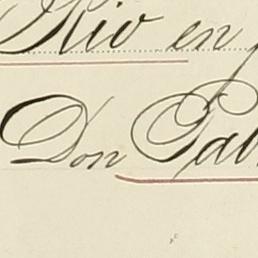 Rio en
Don Gab